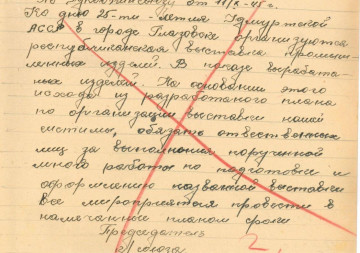 от 11/X-45 г.
Ко дню 25-ти-летия Удмуртской
АССР в городе Глазове организуются
республиканская выставка промышлен-
ных изделий. В показе выработа-
ных изделий. На основании этого
исходя из разработаного плана
по организации выставки нашей
систимы, обязать отвественных
лиц за выполнения порученной
много работы по подготовки и
оформлению названой выставки
все мероприятия провести в
намеченные планом сроки
Председатель
союза
2.